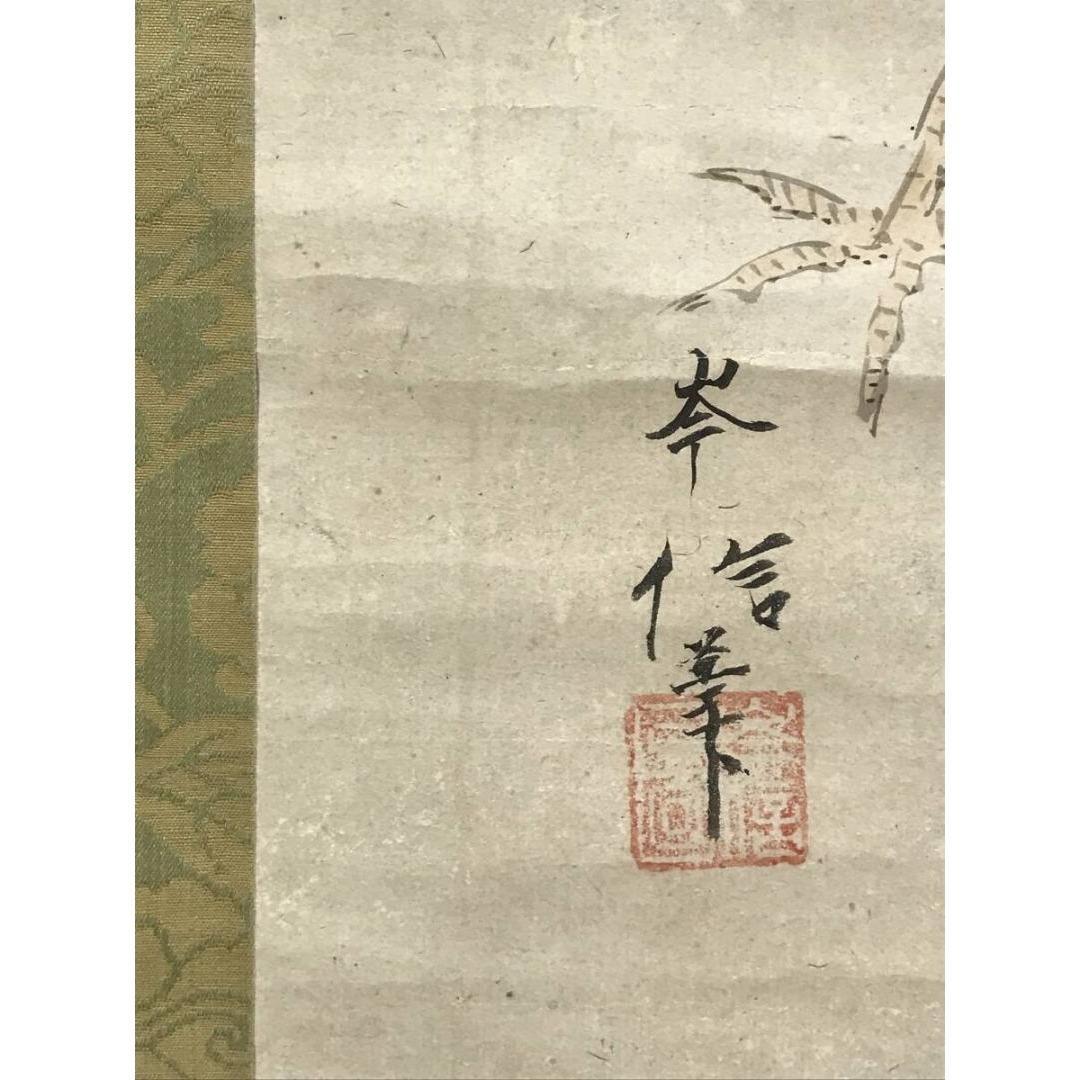 岑信筆